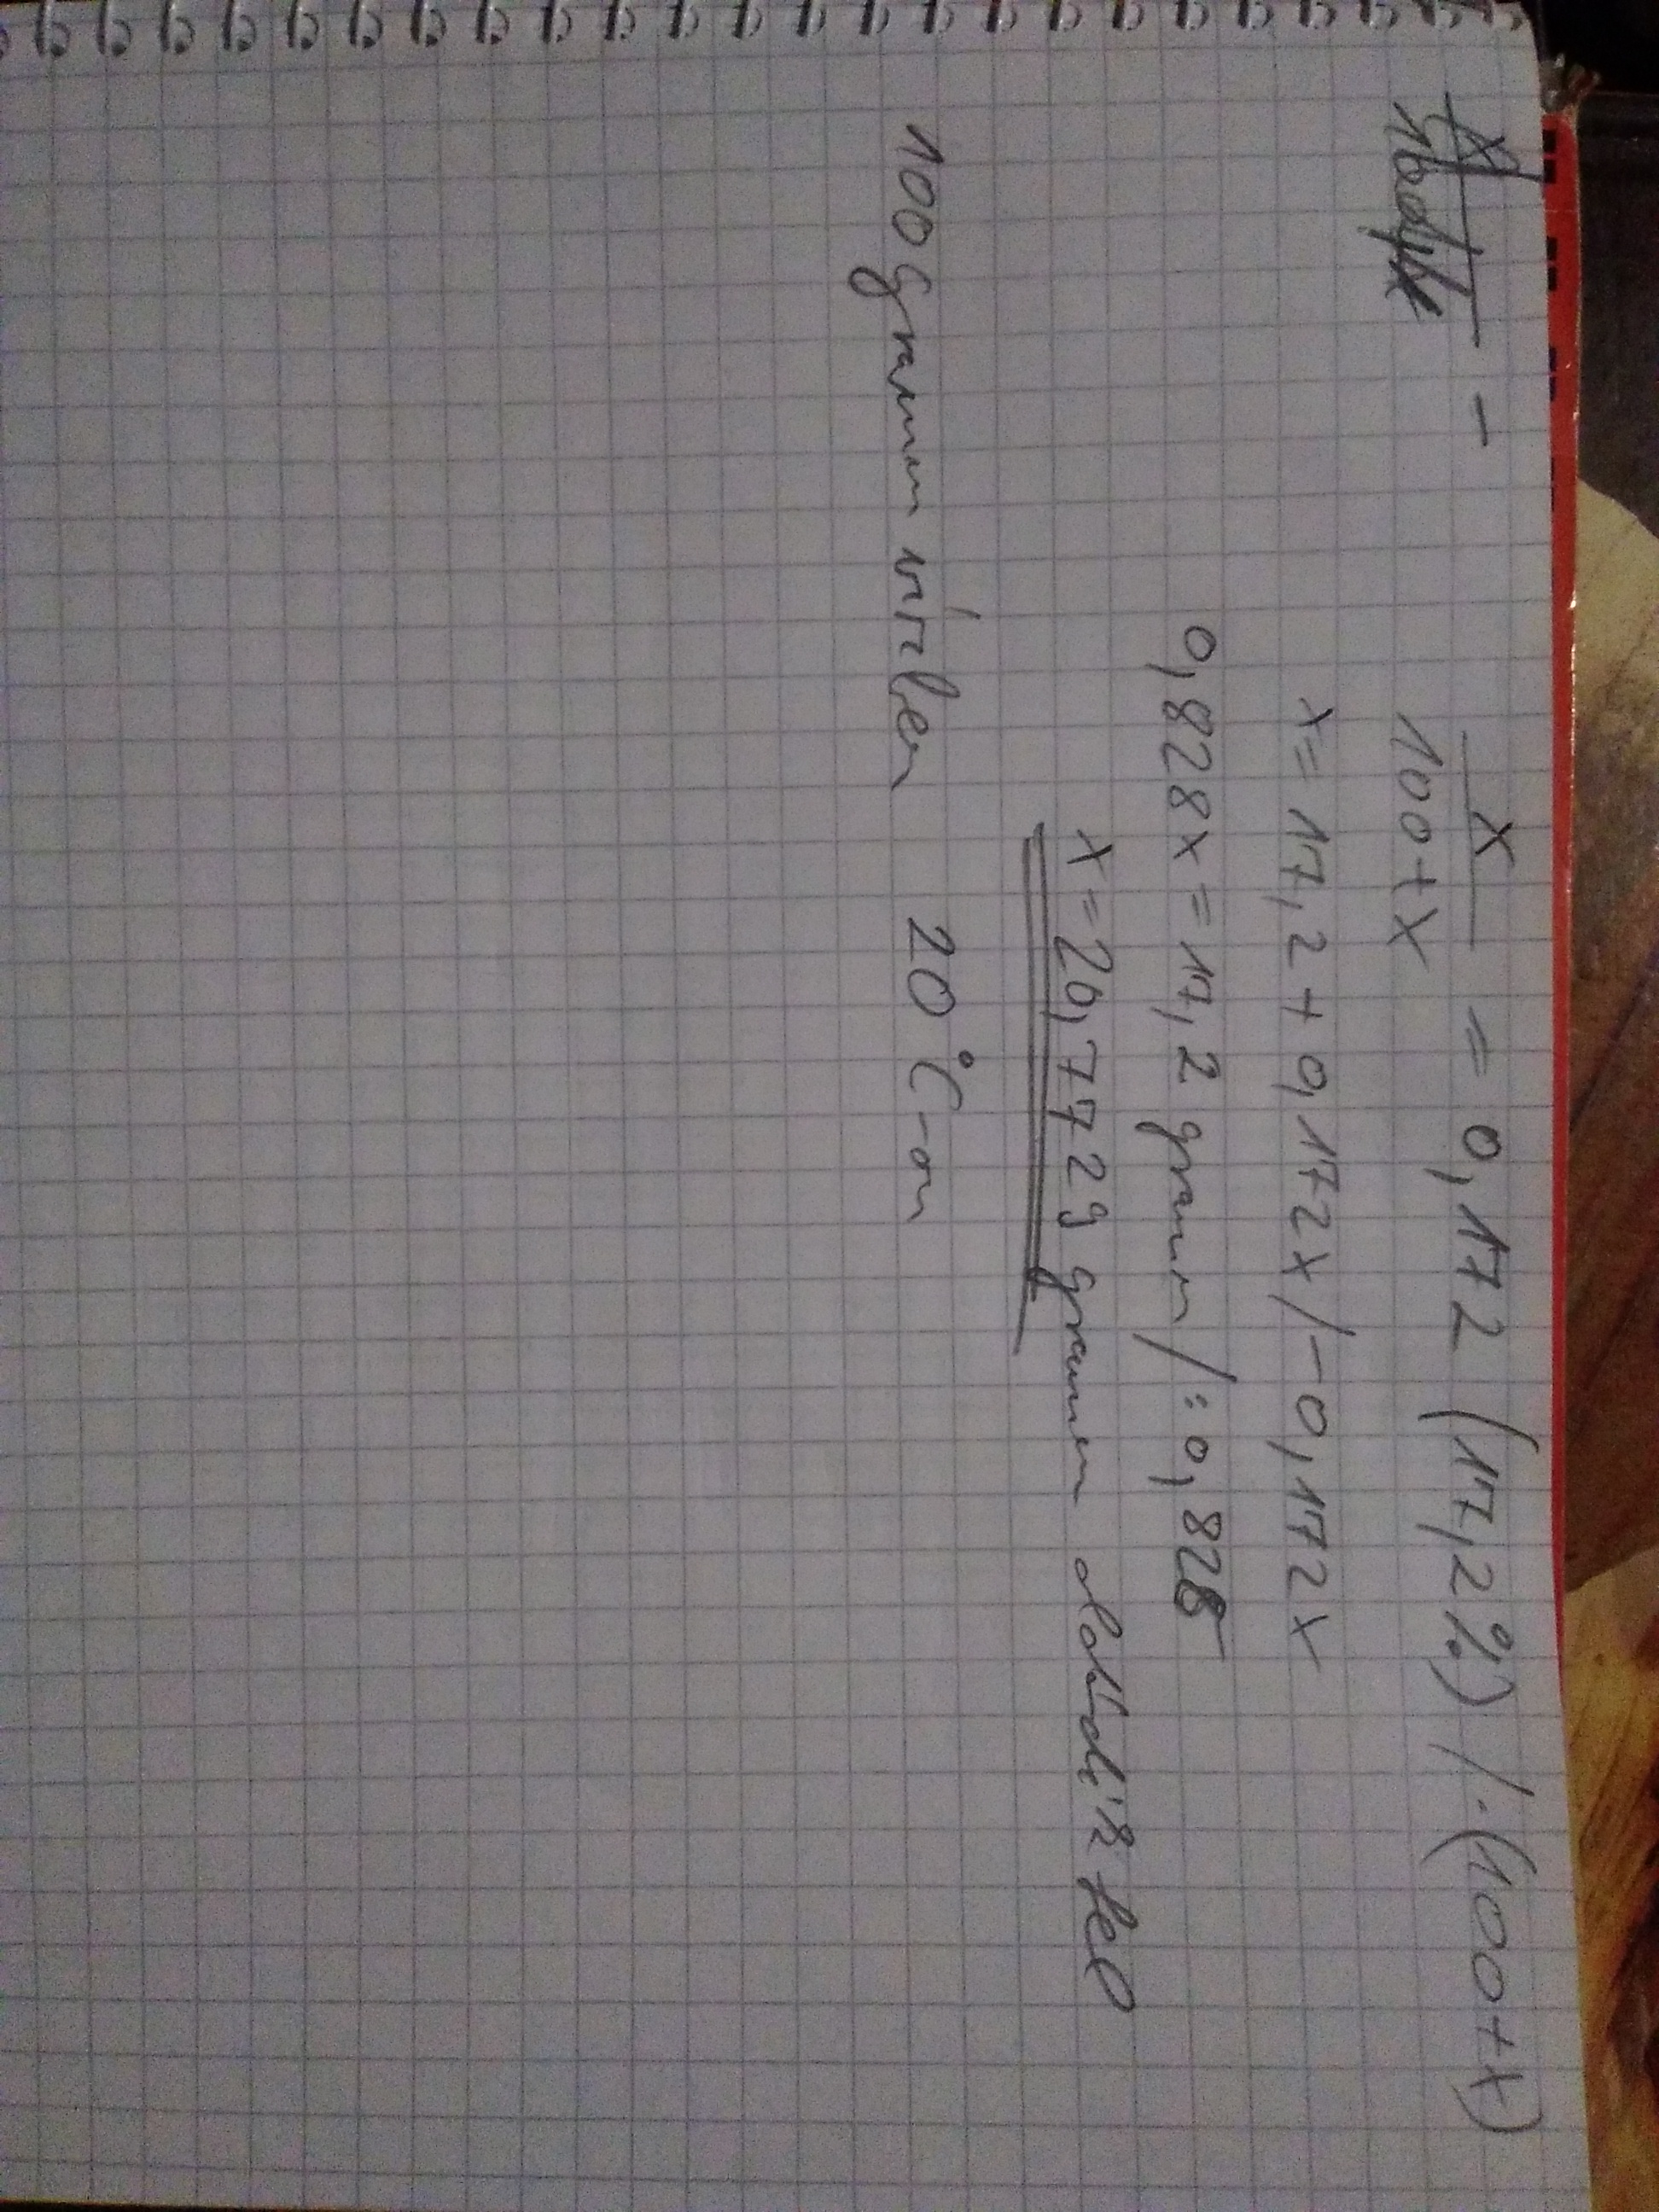 x
100+x = 0,172 (17,2%) /·(100+x)
x = 17,2 + 0,172x /-0,172x
0,828x = 17,2 gramm /:0,828
x = 20,7729 gramm oldódik fel
100 gramm vízben 20°C-on